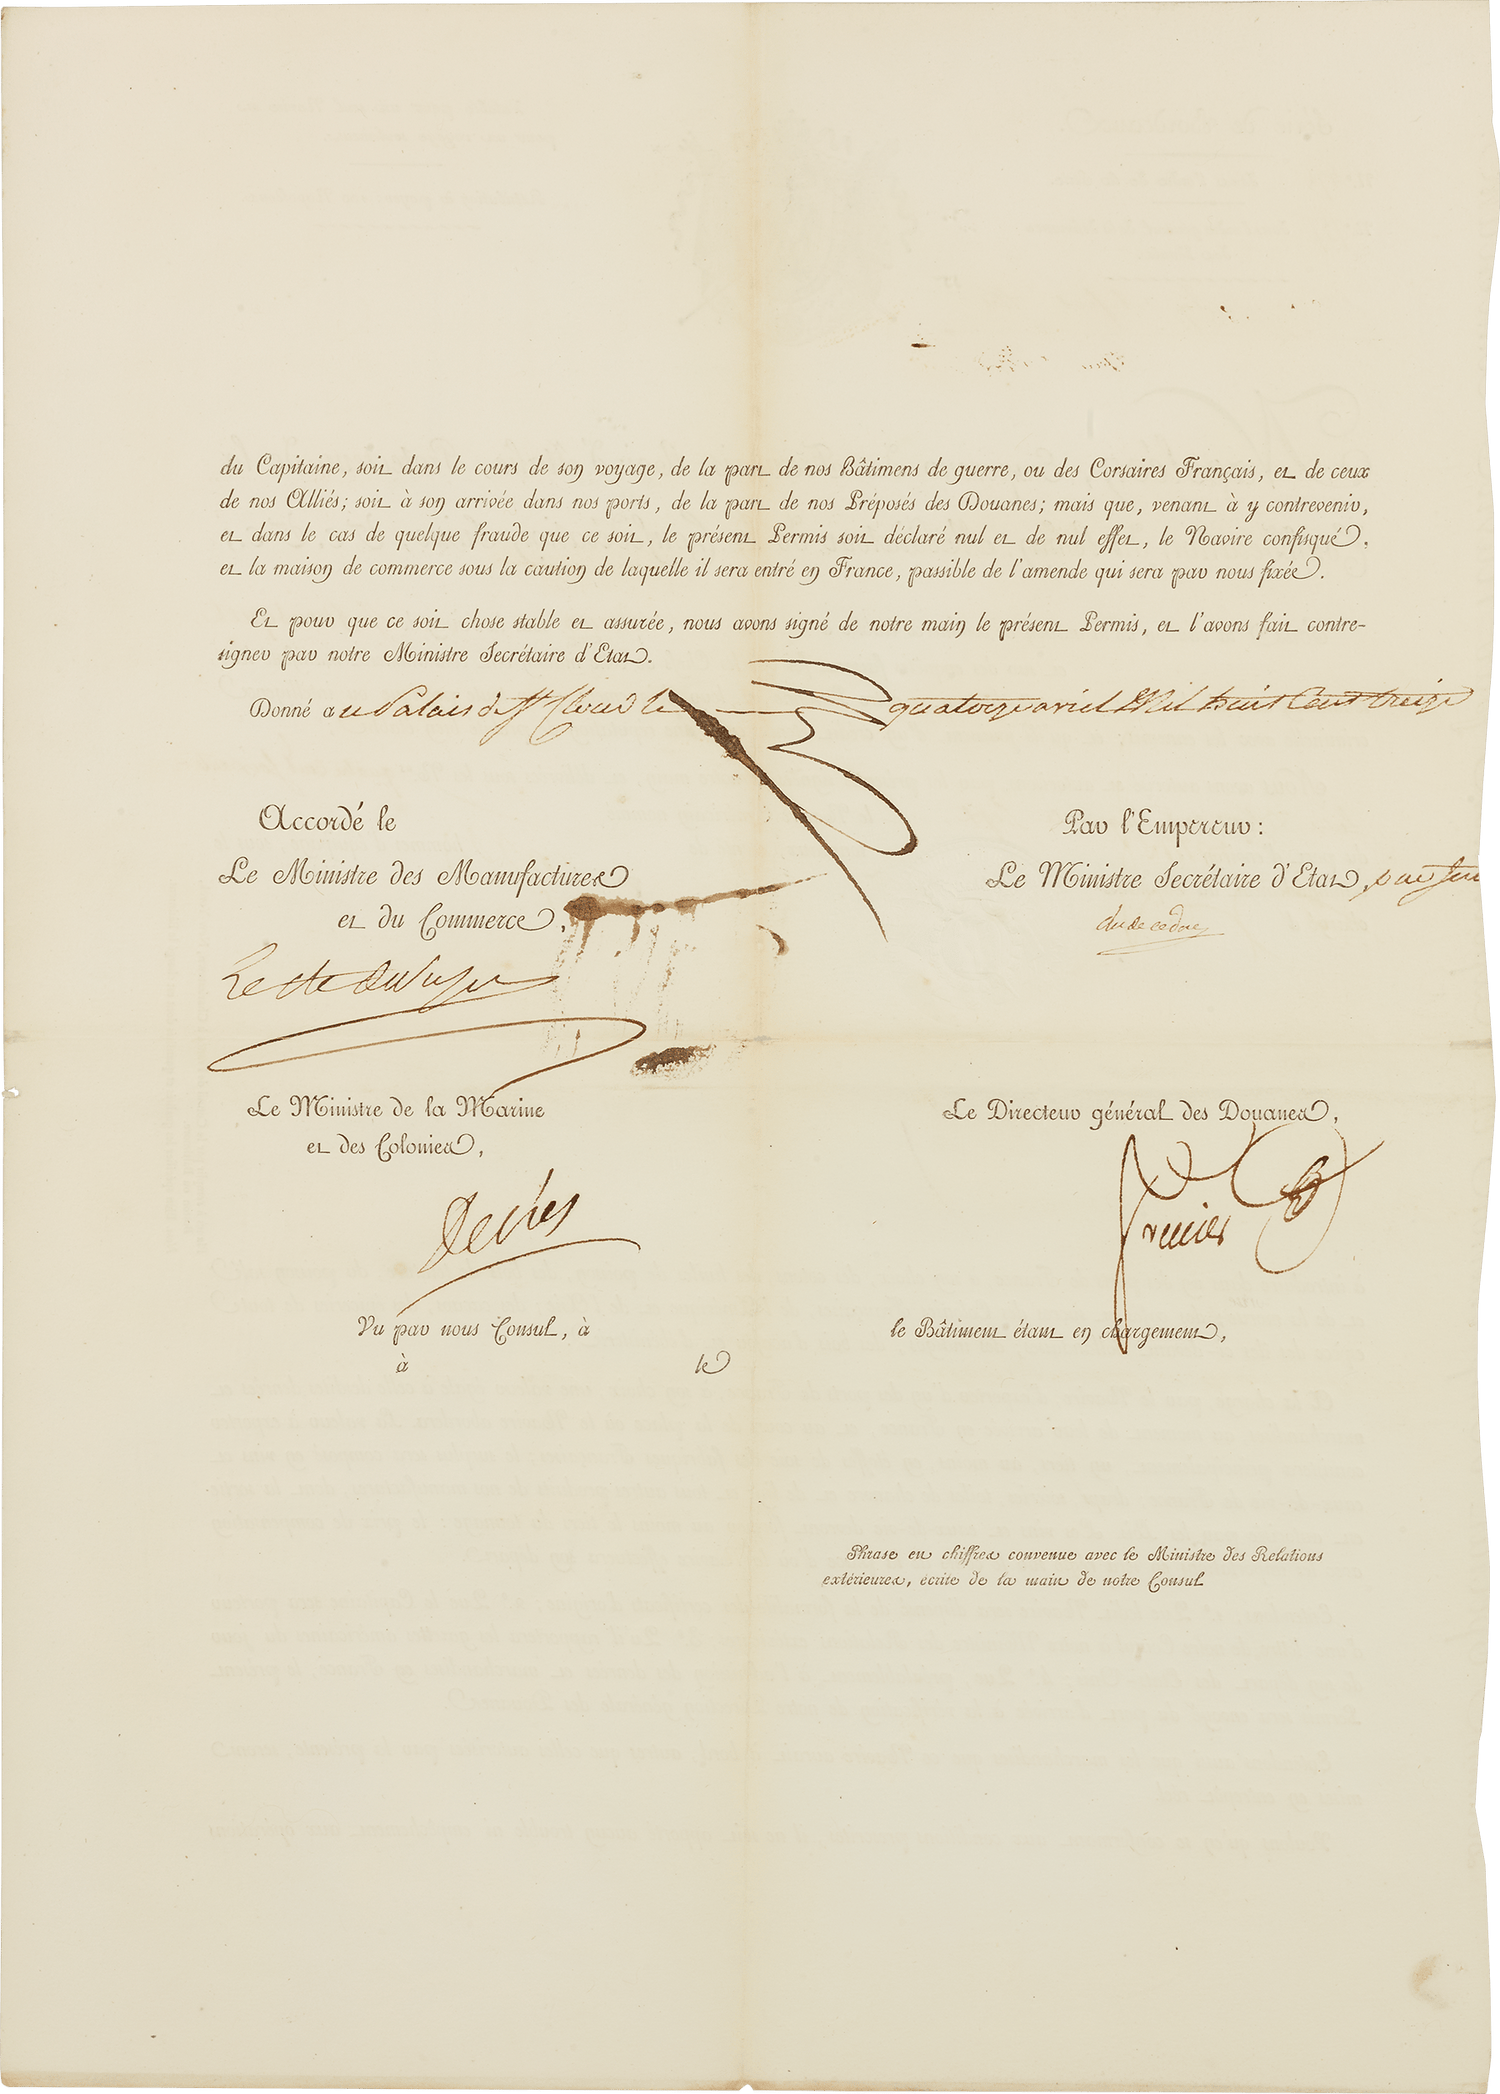 du Capitaine, soit dans le cours de son voyage, de la part de nos Bâtimens de guerre, ou des Corsaires Français, et de ceux
de nos Alliés; soit à son arrivée dans nos ports, de la part de nos Préposés des Douanes; mais que, venant à y contrevenir,
et dans le cas de quelque fraude que ce soit, le présent Permis soit déclaré nul et de nul effet, le Navire confisqué,
et la maison de commerce sous la caution de laquelle il sera entré en France, passible de l'amende qui sera par nous fixée.
Et pour que ce soit chose stable et assurée, nous avons signé de notre main le présent Permis, et l'avons fait contre-
signer par notre Ministre Secrétaire d'Etat.
Donné au Palais de St Cloud le quatorze avril Mil huit Cent treize
Accordé le
Par l'Empereur:
Le Ministre des Manufactures
et du Commerce,
Le Ministre Secrétaire d'Etat,
Le Cte de Sussy
Le Ministre de la Marine
et des Colonies,
Le Directeur général des Douanes,
Decrès
Ferrier
Vu par nous Consul, à
le Bâtiment étant en chargement,
à le
Phrase en chiffres convenue avec le Ministre des Relations
extérieures, écrite de la main de notre Consul